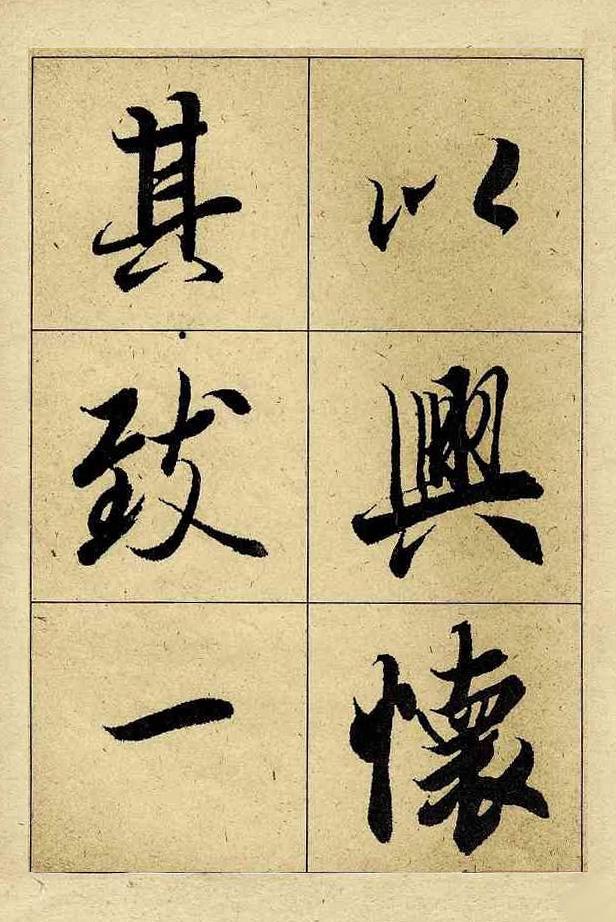 以興懷
其致一